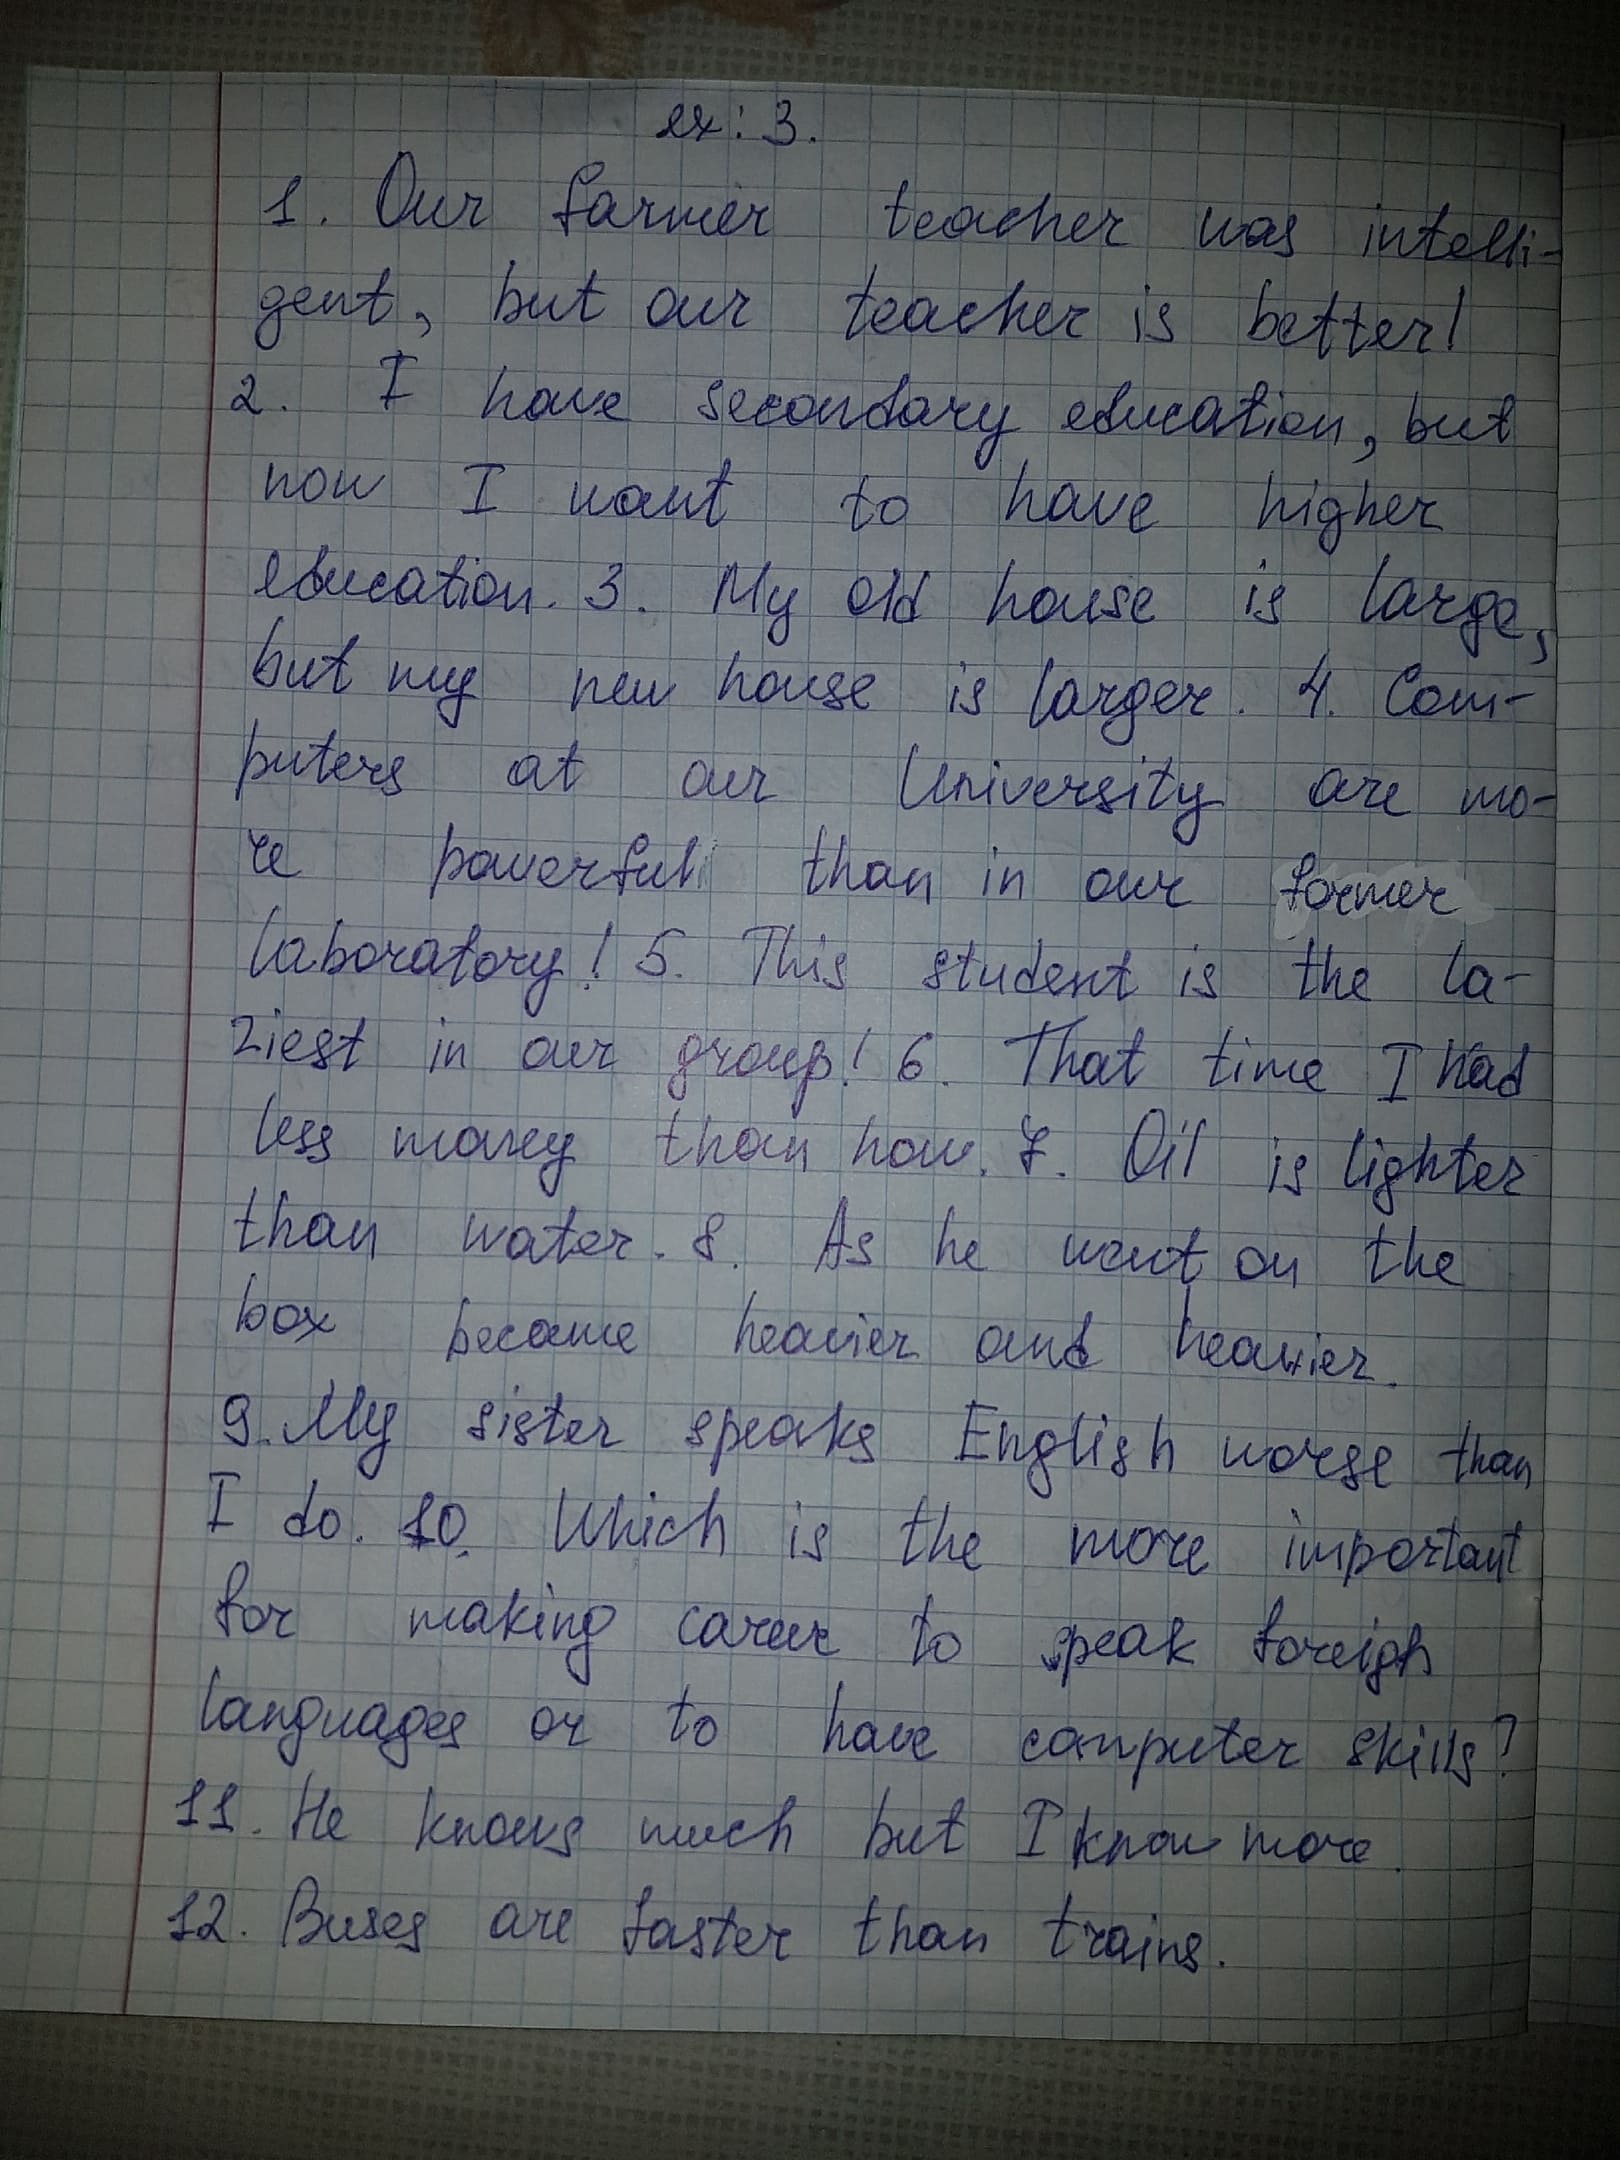 ex: 3.
1. Our farmer teacher was intelli-
gent, but our teacher is better!
2. I have secondary education, but
now I want to have higher
education. 3. My old house is large,
but my new house is larger. 4. Com-
puters at our University are mo-
re powerful than in our former
laboratory! 5. This student is the la-
ziest in our group! 6. That time I had
less money than now. 7. Oil is lighter
than water. 8. As he went on the
box became heavier and heavier.
9. My sister speaks English worse than
I do. 10. Which is the more important
for making career to speak foreign
languages or to have computer skills?
11. He knows much but I know more.
12. Buses are faster than trains.